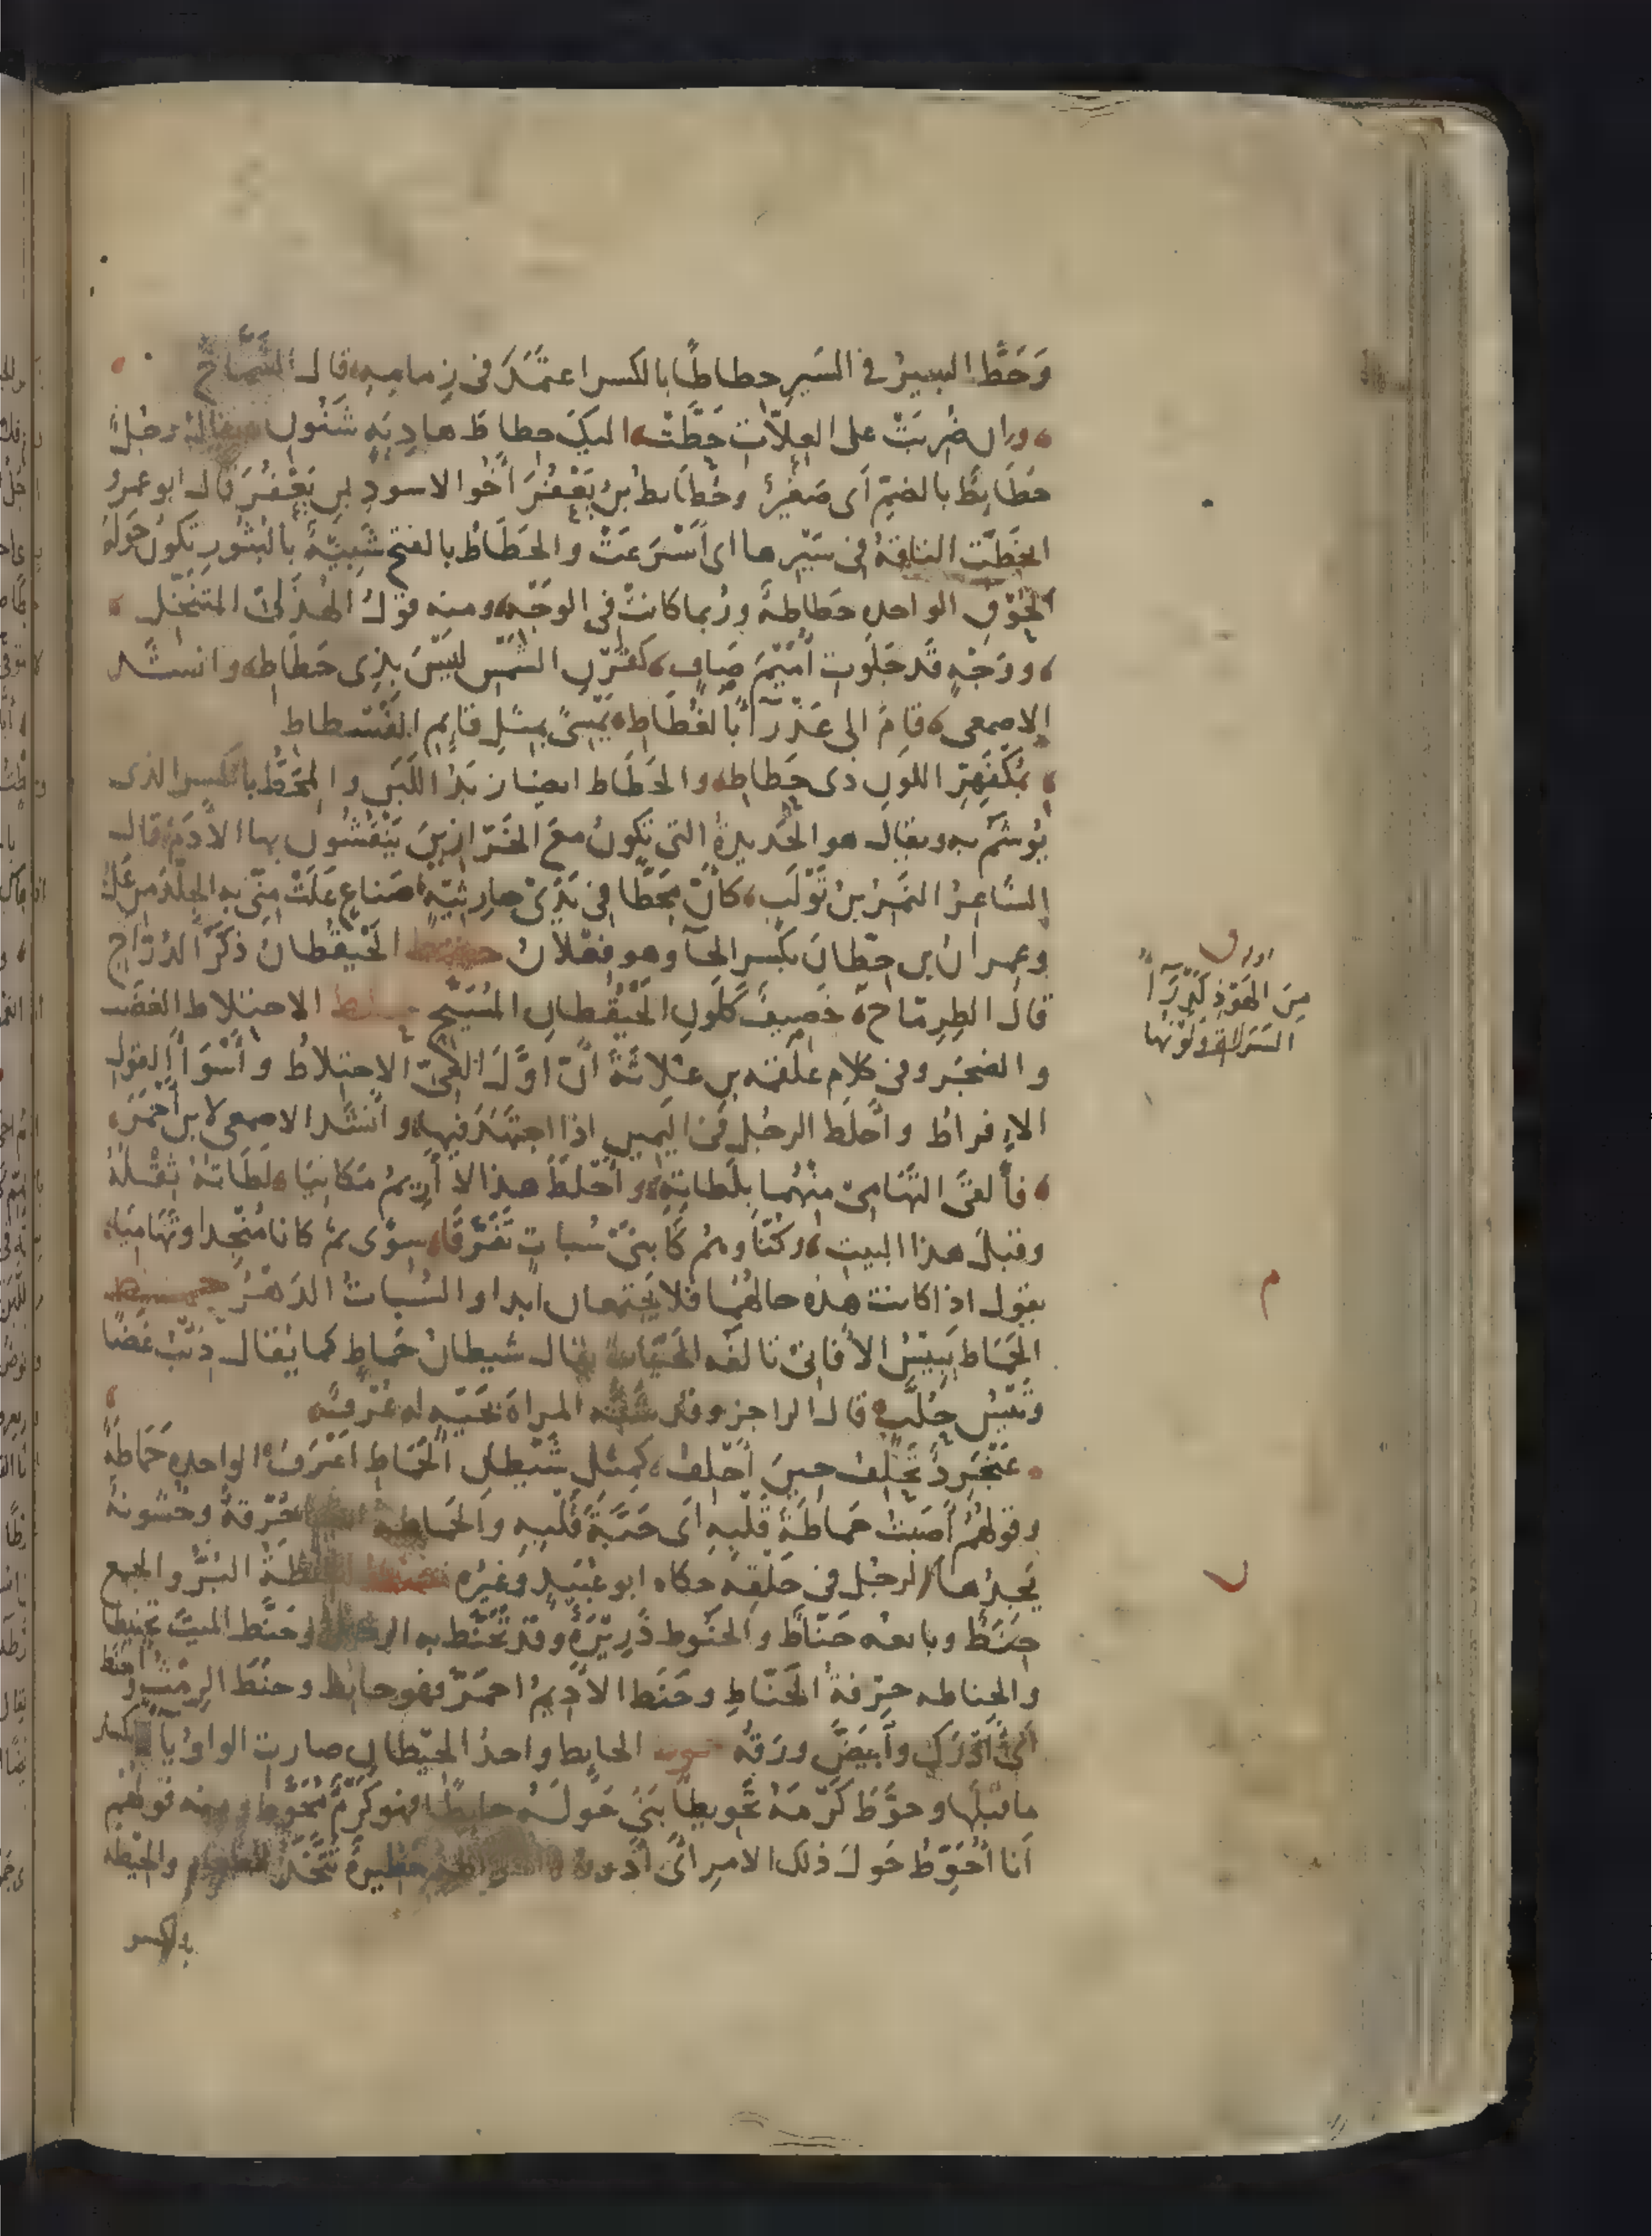 وَحَطَّ البعيرُ في السَيرِ حِطاطًا بالكسر اعتمَدَ في زِمامِهِ قال الشَّمّاخُ
وان ضُرِبَتْ على العِلّاتِ حَطَّتْ اليكَ حِطاطَ هادِيَةٍ شَنُونِ ويقالُ رجُلٌ
حُطَايِطٌ بالضمّ اَي صَغيرٌ وحُطَايطُ بنُ يَعْفُرَ أخُو الاسودِ بنِ يَعْفُرَ قال ابو عمرٍو
انحَطَّتِ الناقةُ في سَيْرِها اى أسْرَعَتْ والحَطَاطُ بالفتح شَبِيهٌ بالبُثُورِ يَكُونُ حَولَ
الحُوقِ الواحده حَطاطةٌ ورُبما كانتْ في الوجْهِ ومنه قولُ الهُذَلىّ المتنَخِّل
ووَجْهٍ قد جَلَوتِ أُمَيْمَ صَافٍ كقَرْنِ الشمْسِ لَيْسَ بذِى حَطَاطِ وانشد
الاصمعى قامَ الى عَذْرَآءَ بالغُطَاطِ يَمْشِى بمِثْلِ قايِمِ الفُسْطاطِ
بمُكْفَهِرِّ اللونِ ذى حَطاطِ والحَطَاط ايضا زبَدُ اللَبَنِ والمِحَطُّ بالكسر الذى
يُوشَمُ به ويقال هو الحَديدةُ التى تكونُ معَ الخَرّازِينَ يَنْقُشُون بها الأدَمَ قال
الشاعِرُ النَمِرُ بنُ تَوْلَبٍ كأنّ مِحَطًّا في يَدَىْ حارِثِيّةٍ صَناعٍ عَلَتْ مِنّى بهِ الجِلْدَ من عَلُ
وعمرانُ بن حِطّانَ بكَسرِ الحآ وهو فِعْلانُ حقط الحَيقُطانُ ذكَرُ الدُرّاجِ
قال الطِرِمّاحُ خَصِيفٌ كلَونِ الحَيْقُطانِ المُسَيَّحِ حلط الاحتلاط الغضَب
والضجَر وفى كلامِ علقمَه بن عُلاثَةَ أنّ اوّلَ العِىّ الاحتِلاطُ وأسْوَأ القولِ
الإفراطُ وأحلَط الرجُل في اليَمينِ اذا اجتَهَدَ فيها وأنشَد الاصمعى لابن أحْمَرَ
فألقَى التَهامِىُّ مِنْهُما بلَطاتِهِ وأحْلَطَ هذا لا أرِيمُ مَكانِيَا لَطَاتُهُ ثِقْلُهُ
وقبلَ هذا البيتِ وكُنّا وهُم كَابنَىْ سُباتٍ تَفَرَّقَا سِوًى ثمّ كانا مُنْجِدًا وتَهامِيَا
يقول اذا كانت هذه حالهُمَا فلا يَجتمعان ابدا والسُباتُ الدَهْرُ حمط
الحَمَاط يَبِيسُ الأفانِىْ تالفُه الحَيّاتُ يقال شيطانُ حَماطٍ كما يُقال ذِئْبُ غَضًا
وتَيْسُ حُلَّبٍ قال الراجز وقد شَبَّه المراة بحَيّهٍ له عُرْفٌ
عَنْجَرِدٌ تَحْلِفُ حِينَ أحْلِفُ كمِثْلِ شَيْطانِ الحَمَاطِ اعْرَفُ الواحده حَمَاطةٌ
وقولهُم أصَبتُ حَماطَةَ قَلْبِهِ أى حَبّةَ قَلبِهِ والحَمَاطه ايضا حُرْقةٌ وخُشُونةٌ
يَجِدُها الرجُل في حَلْقِه حكاه ابو عُبَيدٍ وغيْره حنط الحِنْطَةُ البُرُّ والجمع
حِنَطٌ وبايعُه حَنّاطٌ والحَنُوط ذَرِيرَةٌ وقد تَحَنَّطَ به الرجُل وحَنَّط الميتَ تحنيطا
والحِناطه حِرْفةُ الحَنّاطِ وحَنَط الأدِيمُ احمَرّ فهو حانِطٌ وحنَطَ الرِمْثُ وأحنَطَ
أىْ أدْرَكَ وأبيَضَّ ورَقُه حوط الحايِط واحدُ الحِيْطانِ صارت الواوُ ياً لكسر
ما قبلَها وحوَّطَ كَرْمَهُ تحْوِيطا بَنَى حَولَهُ حايِطا فهو كَرْمٌ مُحَوَّطٌ ومنه قولهُم
أنا أُحَوِّطُ حَولَ ذلك الامرِ أىْ أدُورُ حَظيرةٌ تُتَّخَذُ للطعام والحِيْطه
بالكسر
مِنَ الهَوْذِ كَدْرَآءُ
السَرَاةِ ولَوْنُها